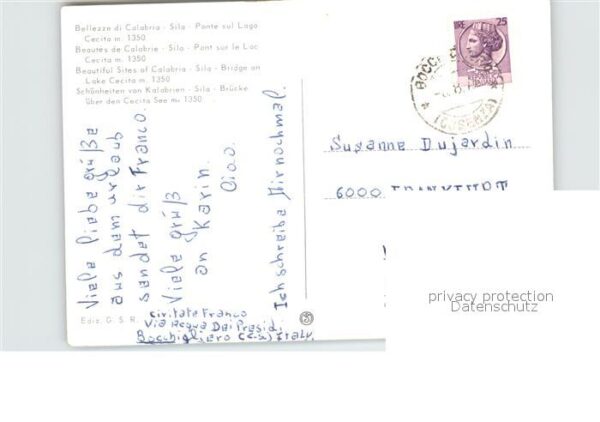 Bellezze di Calabria - Sila - Ponte sul Lago
Cecita m. 1350
Beautés de Calabrie - Sila - Pont sur le Lac
Cecita m. 1350
Beautiful Sites of Calabria - Sila - Bridge on
Lake Cecita m. 1350
Schönheiten von Kalabrien - Sila - Brücke
über den Cecita See m. 1350
Viele liebe grüße
aus dem urlaub
sendet dir Franco.
Viele grüß
an Karin.
Ciao.
Ich schreibe Dir nochmal.
Ediz. G. S. R.
Civitate Franco
Via Acqua Dei Presidi,
Bocchigliero (Cs) Italy.
LIRE 25
(COSENZA)
Susanne Dujardin
6000 FRANKFURT
privacy protection
Datenschutz